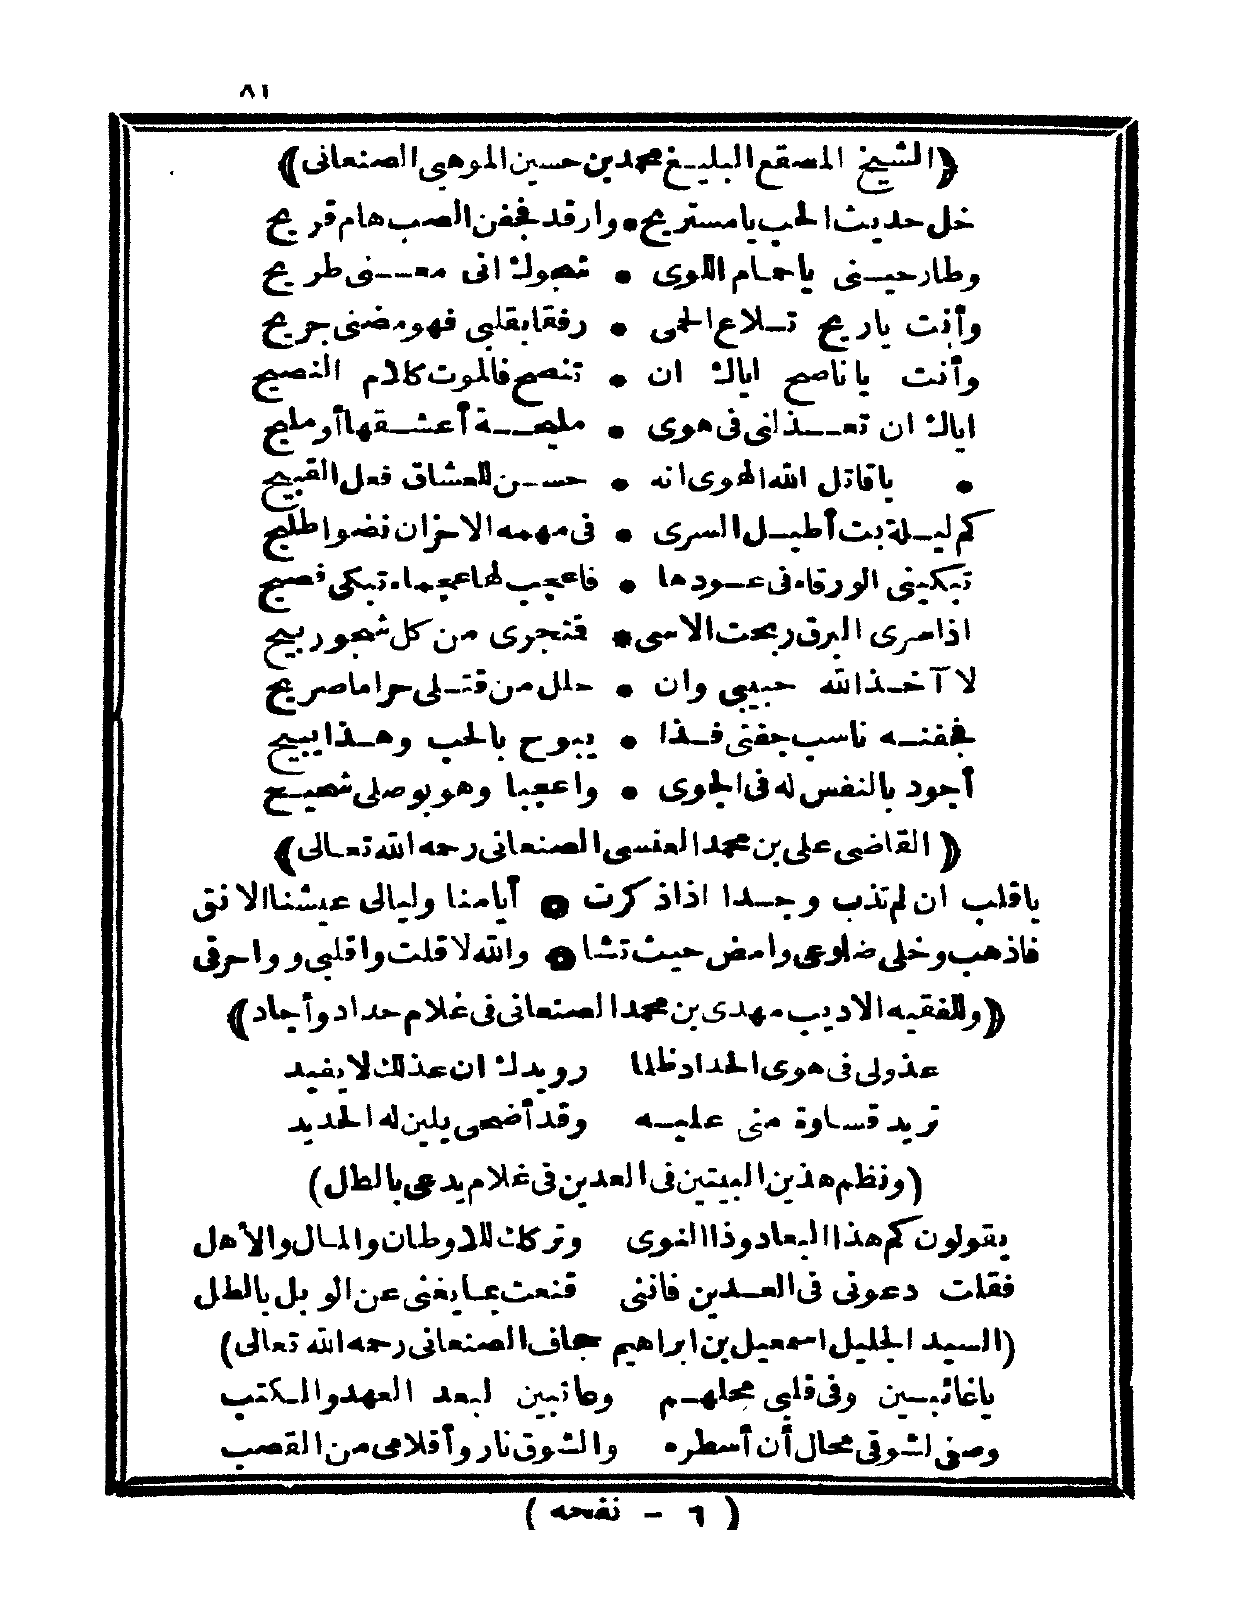 ٨١
﴿الشيخ المصقع البليغ محمد بن حسين الموهبى الصنعانى﴾
خل حديث الحب يا مستريح • وارقد فجفن الصب هام قريح
وطارحينى يا حمام اللوى • شجوك انى معنى طريح
وأنت ياريح تلاع الحمى • رفقا بقلبى فهو مضنى جريح
وأنت يا ناصح اياك ان • تنصح فالموت كلام النصيح
اياك ان تعذلنى فى هوى • مليحة أعشقها أو مليح
• يا قاتل الله الهوى انه • حسن للعشاق فعل القبيح
كم ليلة بت أطيل السرى • فى مهمه الاحزان نضوا طليح
تبكينى الورقاء فى عودها • فاعجب لها عجماء تبكى فصيح
اذا سرى البرق ربحت الاسى • فتجرى من كل شجو ربيح
لا آخذ الله حبيبى وان • حلل من قتلى حراما صريح
فجفنه ناسب جفنى فذا • يبوح بالحب وهذا يبيح
أجود بالنفس له فى الجوى • واعجبا وهو بوصلى شحيح
﴿القاضى على بن محمد العنسى الصنعانى رحمه الله تعالى﴾
يا قلب ان لم تذب وجدا اذا ذكرت • أيامنا وليالى عيشنا الانق
فاذهب وخلى ضلوعى وامض حيث تشا • والله لا قلت واقلبى وواحرقى
﴿وللفقيه الاديب مهدى بن محمد الصنعانى فى غلام حداد وأجاد﴾
عذولى فى هوى الحداد ظلما رويدك ان عذلك لا يفيد
تريد قساوة منى عليه وقد أضحى يلين له الحديد
(ونظم هذين البيتين فى العدين فى غلام يدعى بالطل)
يقولون كم هذا البعاد وذا النوى وتركك للاوطان والمال والأهل
فقلت دعونى فى العدين فاننى قنعت بما يغنى عن الوبل بالطل
(السيد الجليل اسمعيل بن ابراهيم حجاف الصنعانى رحمه الله تعالى)
يا غائبين وفى قلبى محلهم وعاتبين لبعد العهد والكتب
وصفى لشوقى محال أن أسطره والشوق نار وأقلامى من القصب
( ٦ - نفحه )